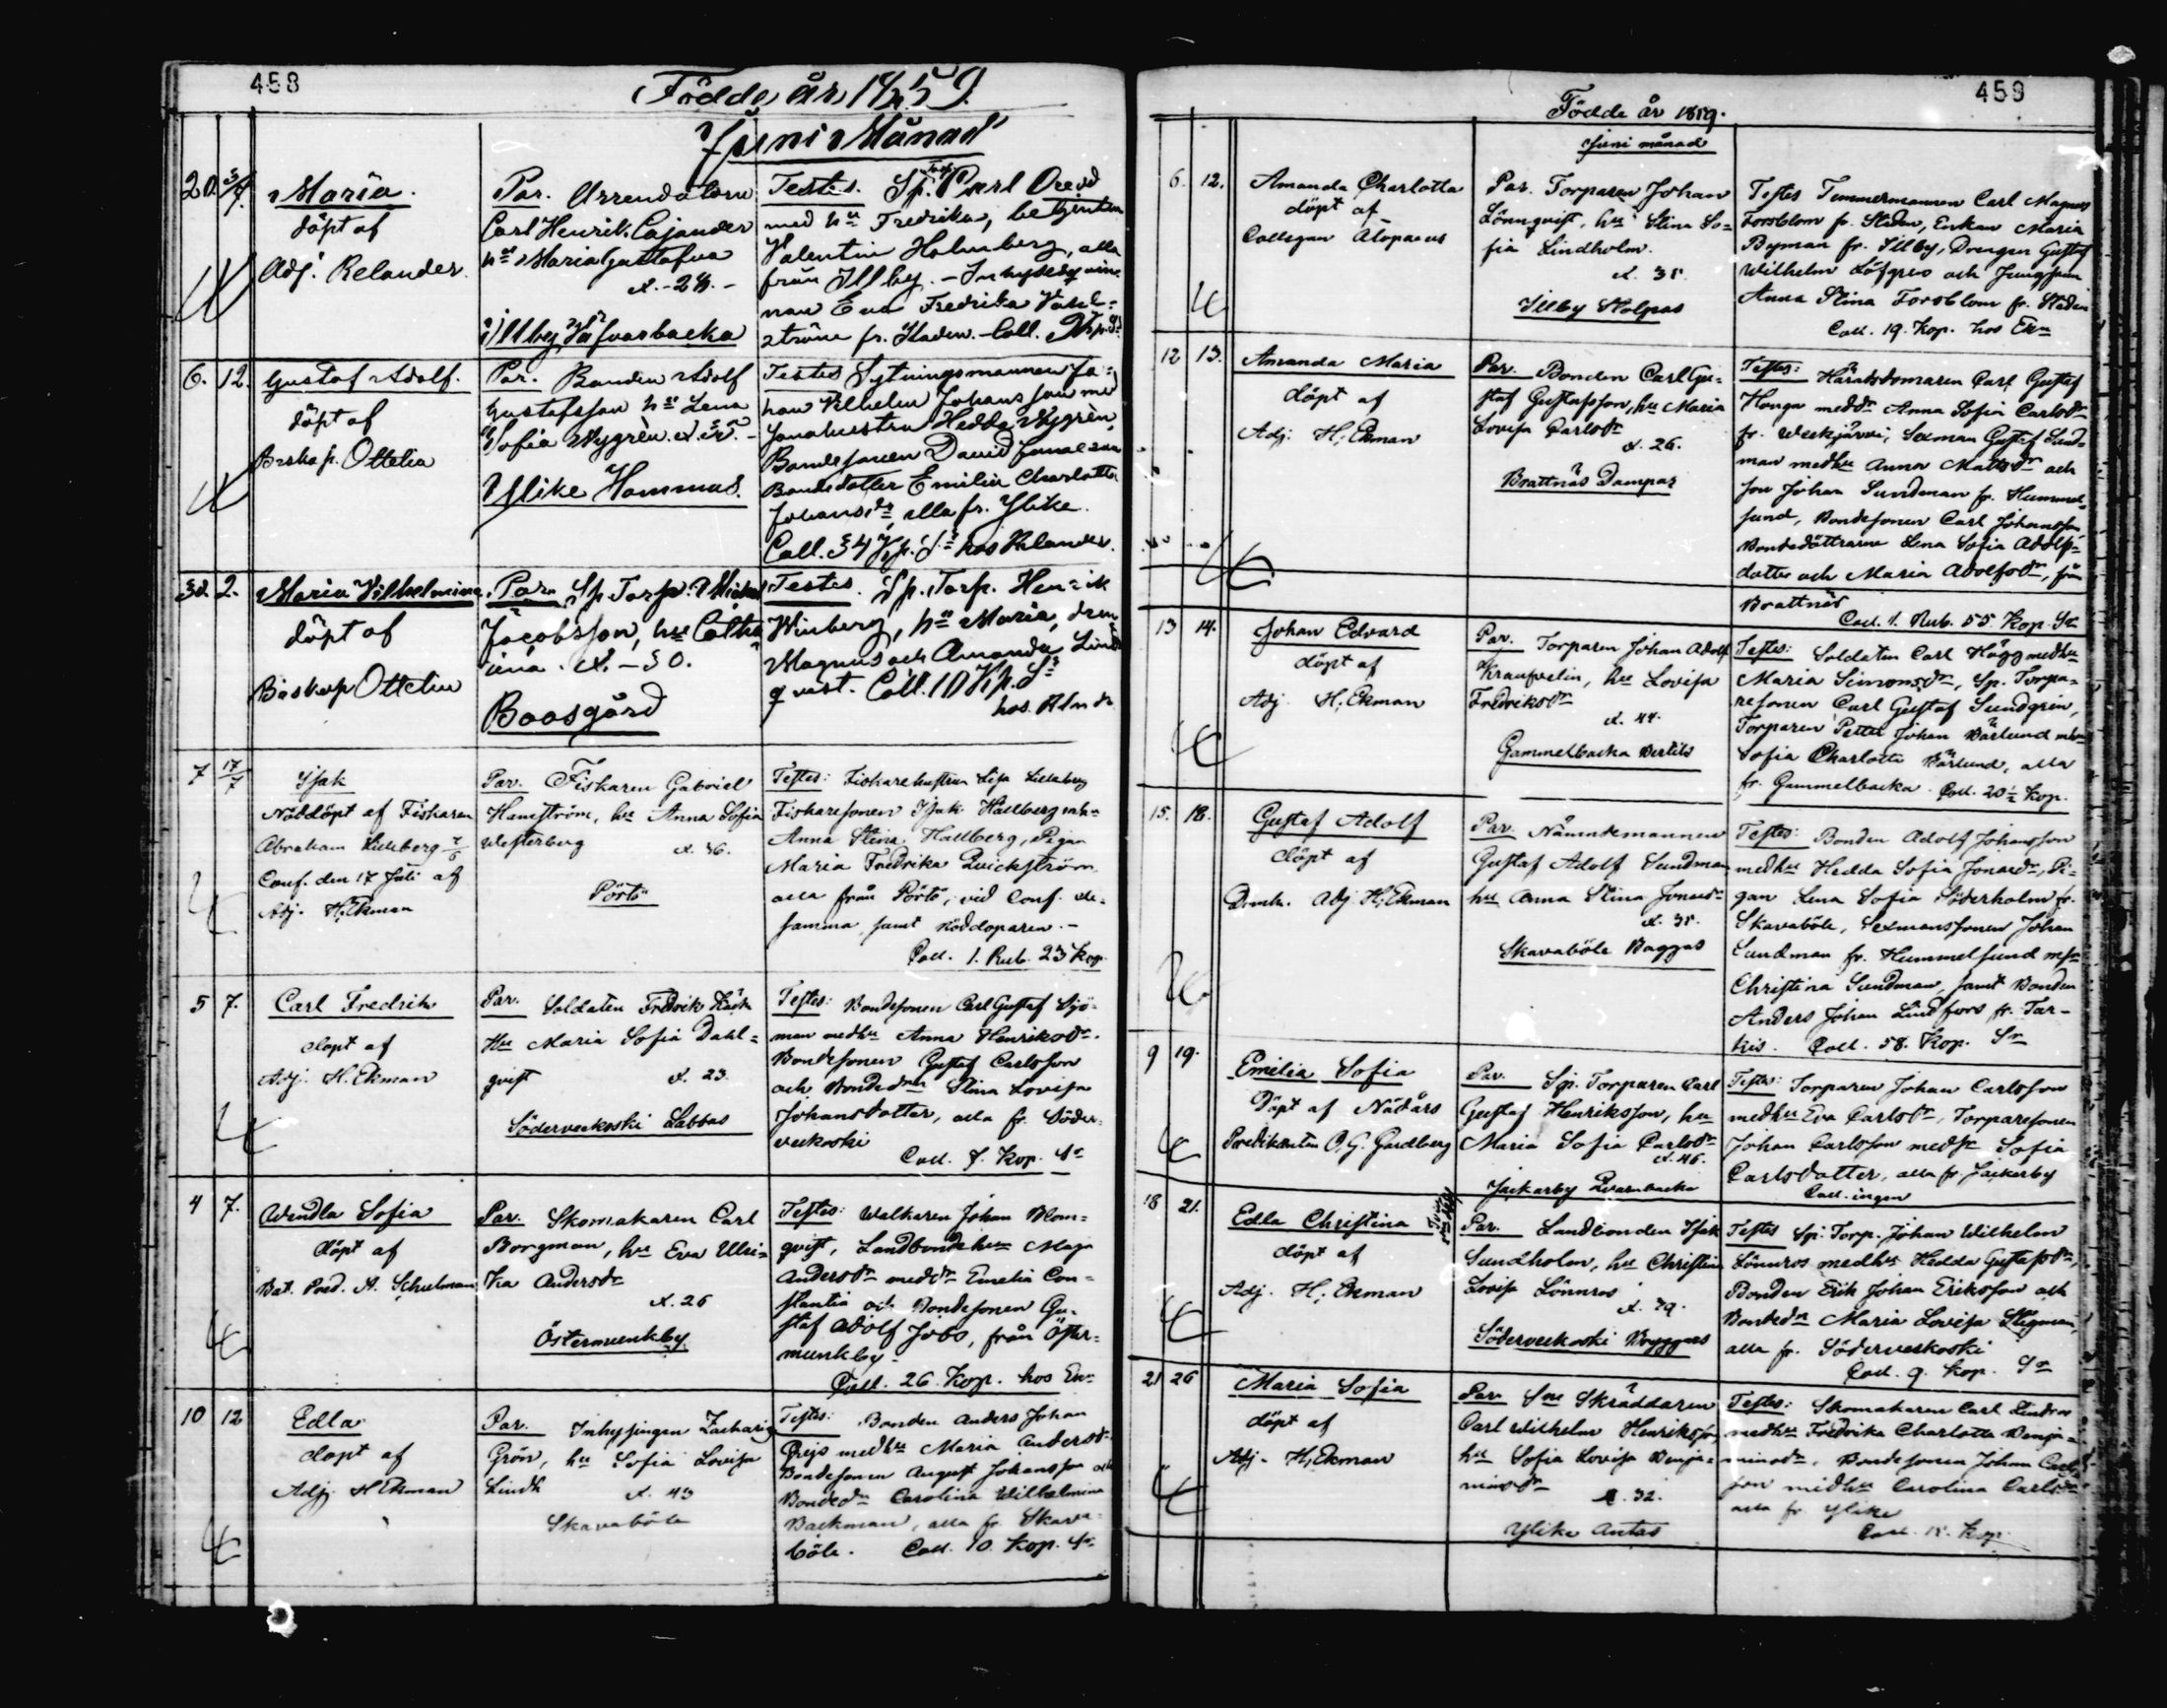 458
Födde år 1859.
Juni Månad
20. 3/7.
Maria.
döpt af
Adj. Relander.
Par. Arrendatorn
Carl Henrik Cajander
hu Maria Gustafva
Illby
Testes. Sp. Torp. Carl
med hu Fredrika, betjenten
Valentin Holmberg, alla
från Illby. - Inhyses
nan Eva Fredrika
ström fr. Staden. Coll.
6. 12.
Gustaf Adolf.
döpt af
Biskop. Ottelin
Par. Bonden Adolf
Gustafsson hu Lena
Sofia Nygrén.
Ylike Hommas.
Testes Sytningsmannen Jo-
han Vilhelm Johansson med
hustru Hedda Nygrén,
Bondesonen David
Bondedotter Emilia Charlotta
Johansdr, alla fr. Ylike.
Coll. 34 Kp. Sr hos Relander.
30. 2.
Maria Vilhelmina
döpt af
Biskop Ottelin
Par. Sp. Torp. Michel
Jacobsson, hu Catha
rina. æt. - 30.
Boosgård
Testes. Sp. Torp. Henrik
Winberg, hu Maria, dren
Magnus och Amanda Lind
qvist. Coll. 10 Kp. Sr
hos Rlndr
7 17/7
Isak
Nöddöpt af Fiskaren
Abraham Lillberg
Conf. den 17 Juli af
Adj. H. Ekman
Par. Fiskaren Gabriel
Hamström, hu Anna Sofia
Westerberg æt. 36.
Pörtö
Testes: Fiskarehustrun Lisa Lillberg
Fiskaresonen Isak Hallberg
Anna Stina Hallberg, Pigan
Maria Fredrika Quickström
alla från Pörtö, vid Conf. de-
samma, samt nöddöparen. -
Coll. 1. Rub. 23 Kop.
5 7.
Carl Fredrik
döpt af
Adj. H. Ekman
Par. Soldaten Fredrik
Hu Maria Sofia Dahl-
qvist æt. 23.
Söderveckoski Labbas
Testes: Bondesonen Carl Gustaf Sjö-
man medhu Anna Henriksdr.
Bondesonen Gustaf Carlsson
och Bondedn Stina Lovisa
Johansdotter, alla fr. Söder-
veckoski
Coll. 7. Kop. Sr
4 7.
Wendla Sofia
döpt af
Bat. Pred. A. Schulman
Par. Skomakaren Carl
Borgman, hu Eva Ulri-
ka Andersdr
æt. 26
Östermunkby
Testes: Walkaren Johan Blom-
qvist, Landbondehu Maja
Andersdr meddr Emelia Con-
stantia och Bondesonen Gu-
staf Adolf Jobs, från Öster-
munkby.
Coll. 26 Kop. hos En
10 12
Edla
döpt af
Adj. H Ekman
Par. Inhysingen Zacharias
Grön, hu Sofia Lovisa
Lindh æt. 43
Skavaböle
Testes: Bonden Anders Johan
Grejs medhu Maria Andersdr
Bondesonen August Johansson och
Bondedn Carolina Wilhelmina
Backman, alla fr. Skava-
böle. Coll. 10. Kop. Sr
459
Födde år 1859.
Juni månad
6. 12.
Amanda Charlotta
döpt af
Collegan Alopaeus
Par. Torparen Johan
Lönnqvist, hu Stina So-
fia Lindholm.
æt. 35.
Illby Stolpas
Testes Timmermannen Carl Magnus
Forsblom fr. Staden, Enkan Maria
Byman fr. Illby, Drengen Gustaf
Wilhelm Löfgren och Jungfrun
Anna Stina Forsblom fr. Staden
Coll. 19. Kop. hos Ekn
12 13.
Amanda Maria
döpt af
Adj. H. Ekman
Par. Bonden Carl Gu-
staf Gustafsson, hu Maria
Lovisa Carlsdr
æt. 26.
Brattnäs Dampas
Testes: Häradsdomaren Carl Gustaf
Honga meddr Anna Sofia Carlsdr
fr. Weckjärvi, Sexman Gustaf Sund-
man medhu Anna Mattsdr och
son Johan Sundman fr. Hummel-
sund, Bondesonen Carl Johansson
Bondedöttrarne Lena Sofia Adolfs-
dotter och Maria Adolfsdr, från
Brattnäs
Coll. 1. Rub. 55 Kop. Sr
13 14.
Johan Edvard
döpt af
Adj. H. Ekman
Par. Torparen Johan Adolf
Kraufvelin, hu Lovisa
Fredriksdr
æt. 44.
Gammelbacka Bertils
Testes: Soldaten Carl Hägg medhu
Maria Simonsdr, Sp. Torpa-
resonen Carl Gustaf Sundgrén,
Torparen Petter Johan Bärlund
Sofia Charlotta Bärlund, alla
fr. Gammelbacka. Coll. 20½ Kop.
15. 18.
Gustaf Adolf
döpt af
Adj. H. Ekman
Par. Nämndemannen
Gustaf Adolf Sundman
hu Anna Stina Jonasdr
æt. 35.
Skavaböle Baggas
Testes: Bonden Adolf Johansson
medhu Hedda Sofia Jonasdr, Pi-
gan Lena Sofia Söderholm fr.
Skavaböle, Sexmanssonen Johan
Sundman fr. Hummelsund
Christina Sundman, samt Bonden
Anders Johan Lindfors fr. Tar-
kis. Coll. 58. Kop. Sr
9 19.
Emilia Sofia
Döpt af Nådårs
Predikanten O. G. Gardberg
Par. Sp. Torparen Carl
Gustaf Henriksson, hu
Maria Sofia Carlsdr
æt. 46.
Jackarby Qvarnbacka
Testes: Torparen Johan Carlsson
medhu Eva Carlsdr, Torparesonen
Johan Carlsson Sofia
Carlsdotter, alla fr. Jackarby
Coll. ingen
18 21.
Edla Christina
döpt af
Adj. H. Ekman
Par. Landbonden Isak
Sundholm, hu Christina
Lovisa Lönnros
æt. 39.
Söderveckoski Bryggars
Testes Sp. Torp. Johan Wilhelm
Lönnros medhu Hedda Gustafsdr,
Bonden Erik Johan Eriksson och
Bondedn Maria Lovisa Stigman,
alla fr. Söderveckoski
Coll. 9. Kop. Sr
21 26
Maria Sofia
döpt af
Adj. H. Ekman
Par. Skräddaren
Carl Wilhelm Henriksson,
hu Sofia Lovisa Benja-
minsdr
æt. 32.
Ylike Antas
Testes: Skomakaren Carl Lindros
medhu Fredrika Charlotta Benja-
minsdr, Bondesonen Johan Carls-
son medhu Carolina Carlsdr
alla fr. Ylike
Coll. 15. Kop.